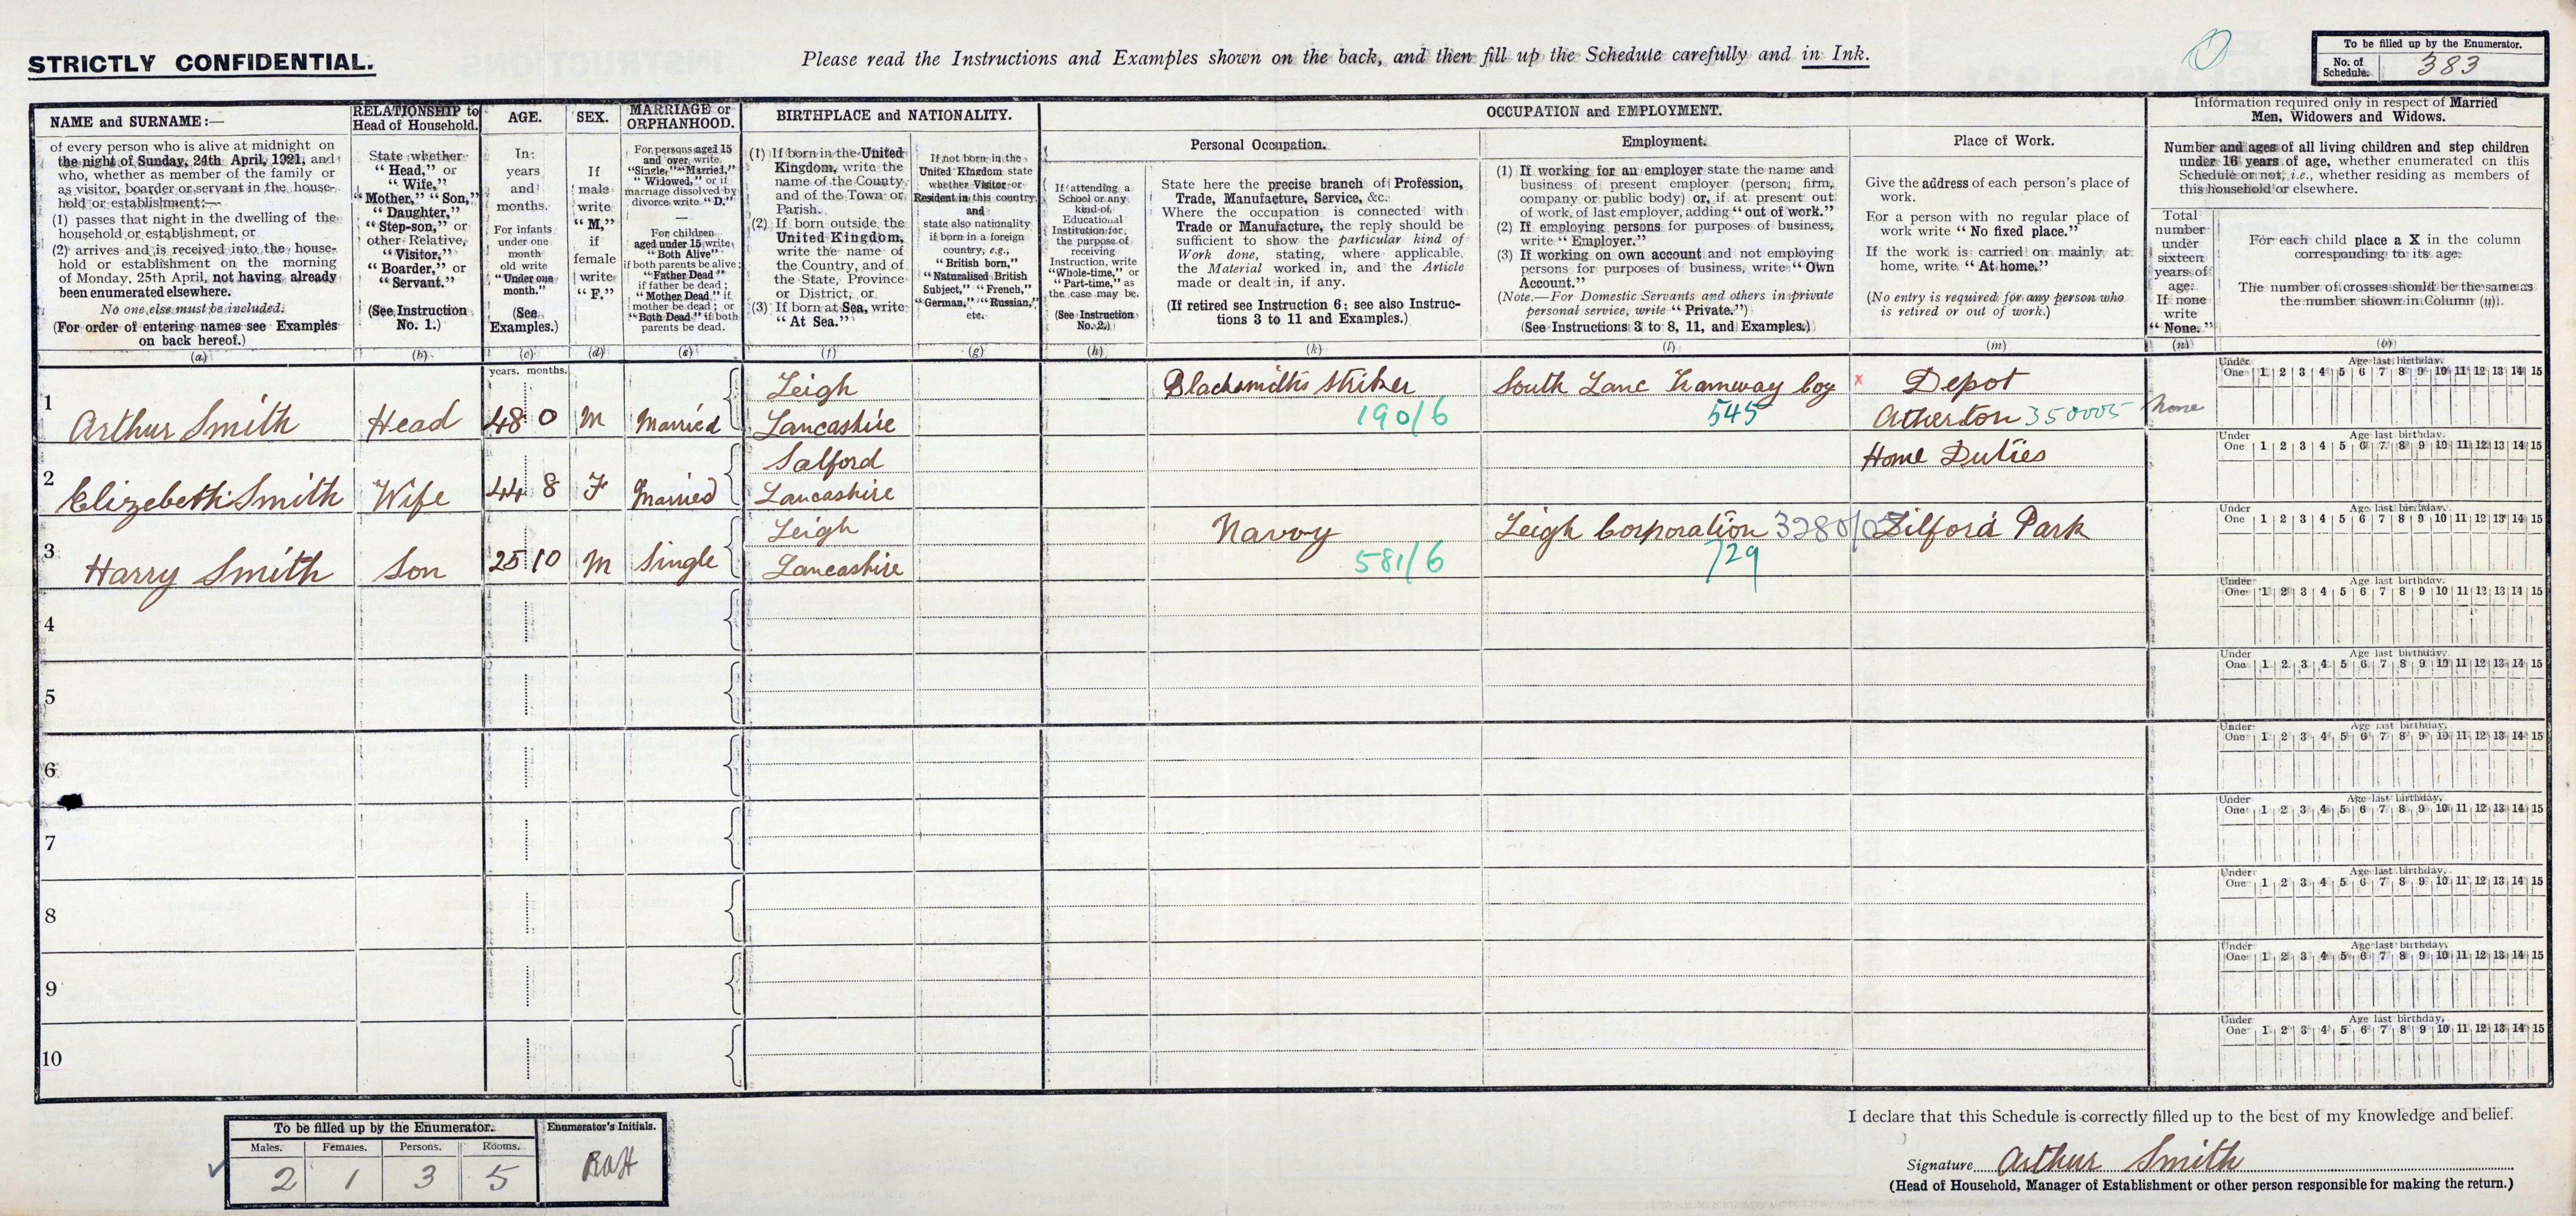 STRICTLY CONFIDENTIAL.
Please read the Instructions and Examples shown on the back, and then fill up the Schedule carefully and in Ink.
To be filled up by the Enumerator.
No. of Schedule. 383
NAME and SURNAME:—
of every person who is alive at midnight on
the night of Sunday, 24th April, 1921, and
who, whether as member of the family or
as visitor, boarder or servant in the house-
hold or establishment:—
(1) passes that night in the dwelling of the
household or establishment, or
(2) arrives and is received into the house-
hold or establishment on the morning
of Monday, 25th April, not having already
been enumerated elsewhere.
No one else must be included.
(For order of entering names see Examples
on back hereof.)
(a)
RELATIONSHIP to
Head of Household.
State whether
"Head," or
"Wife,"
"Mother," "Son,"
"Daughter,"
"Step-son," or
other Relative,
"Visitor,"
"Boarder," or
"Servant."
(See Instruction
No. 1.)
(b)
AGE.
In
years
and
months.
For infants
under one
month
old write
"Under one
month."
(See
Examples.)
(c)
SEX.
If
male
write
"M,"
if
female
write
"F."
(d)
MARRIAGE or
ORPHANHOOD.
For persons aged 15
and over, write
"Single," "Married,"
"Widowed," or if
marriage dissolved by
divorce write "D."
For children
aged under 15 write
"Both Alive"
if both parents be alive;
"Father Dead"
if father be dead;
"Mother Dead" if
mother be dead; or
"Both Dead" if both
parents be dead.
(e)
BIRTHPLACE and NATIONALITY.
(1) If born in the United
Kingdom, write the
name of the County,
and of the Town or
Parish.
(2) If born outside the
United Kingdom,
write the name of
the Country, and of
the State, Province
or District, or
(3) If born at Sea, write
"At Sea."
(f)
If not born in the
United Kingdom state
whether Visitor or
Resident in this country,
and
state also nationality
if born in a foreign
country, e.g.,
"British born,"
"Naturalised British
Subject," "French,"
"German," "Russian,"
etc.
(g)
OCCUPATION and EMPLOYMENT.
If attending a
School or any
kind of
Educational
Institution for
the purpose of
receiving
Instruction, write
"Whole-time," or
"Part-time," as
the case may be.
(See Instruction
No. 2.)
(h)
Personal Occupation.
State here the precise branch of Profession,
Trade, Manufacture, Service, &c.
Where the occupation is connected with
Trade or Manufacture, the reply should be
sufficient to show the particular kind of
Work done, stating, where applicable,
the Material worked in, and the Article
made or dealt in, if any.
(If retired see Instruction 6; see also Instruc-
tions 3 to 11 and Examples.)
(k)
Employment.
(1) If working for an employer state the name and
business of present employer (person, firm,
company or public body) or, if at present out
of work, of last employer, adding "out of work."
(2) If employing persons for purposes of business,
write "Employer."
(3) If working on own account and not employing
persons for purposes of business, write "Own
Account."
(Note.—For Domestic Servants and others in private
personal service, write "Private.")
(See Instructions 3 to 8, 11, and Examples.)
(l)
Place of Work.
Give the address of each person's place of
work.
For a person with no regular place of
work write "No fixed place."
If the work is carried on mainly at
home, write "At home."
(No entry is required for any person who
is retired or out of work.)
(m)
Information required only in respect of Married
Men, Widowers and Widows.
Number and ages of all living children and step children
under 16 years of age, whether enumerated on this
Schedule or not, i.e., whether residing as members of
this household or elsewhere.
Total
number
under
sixteen
years of
age.
If none
write
"None."
(n)
For each child place a X in the column
corresponding to its age.
The number of crosses should be the same as
the number shown in Column (n).
(o)
years. months.
1 Arthur Smith Head 48 0 M Married Leigh Lancashire Blacksmiths Striker 190/6 South Lanc Tramway Coy 545 x Depot Atherton 350005 None
Under One 1 2 3 4 5 6 7 8 9 10 11 12 13 14 15 Age last birthday.
2 Elizebeth Smith Wife 44 8 F Married Salford Lancashire Home Duties
Under One 1 2 3 4 5 6 7 8 9 10 11 12 13 14 15 Age last birthday.
3 Harry Smith Son 25 10 M Single Leigh Lancashire Navvy 581/6 Leigh Corporation 729 Lilford Park
Under One 1 2 3 4 5 6 7 8 9 10 11 12 13 14 15 Age last birthday.
4 Under One 1 2 3 4 5 6 7 8 9 10 11 12 13 14 15 Age last birthday.
5 Under One 1 2 3 4 5 6 7 8 9 10 11 12 13 14 15 Age last birthday.
6 Under One 1 2 3 4 5 6 7 8 9 10 11 12 13 14 15 Age last birthday.
7 Under One 1 2 3 4 5 6 7 8 9 10 11 12 13 14 15 Age last birthday.
8 Under One 1 2 3 4 5 6 7 8 9 10 11 12 13 14 15 Age last birthday.
9 Under One 1 2 3 4 5 6 7 8 9 10 11 12 13 14 15 Age last birthday.
10 Under One 1 2 3 4 5 6 7 8 9 10 11 12 13 14 15 Age last birthday.
To be filled up by the Enumerator.
Males. Females. Persons. Rooms.
2 1 3 5
Enumerator's Initials.
RAH
I declare that this Schedule is correctly filled up to the best of my knowledge and belief.
Signature Arthur Smith
(Head of Household, Manager of Establishment or other person responsible for making the return.)